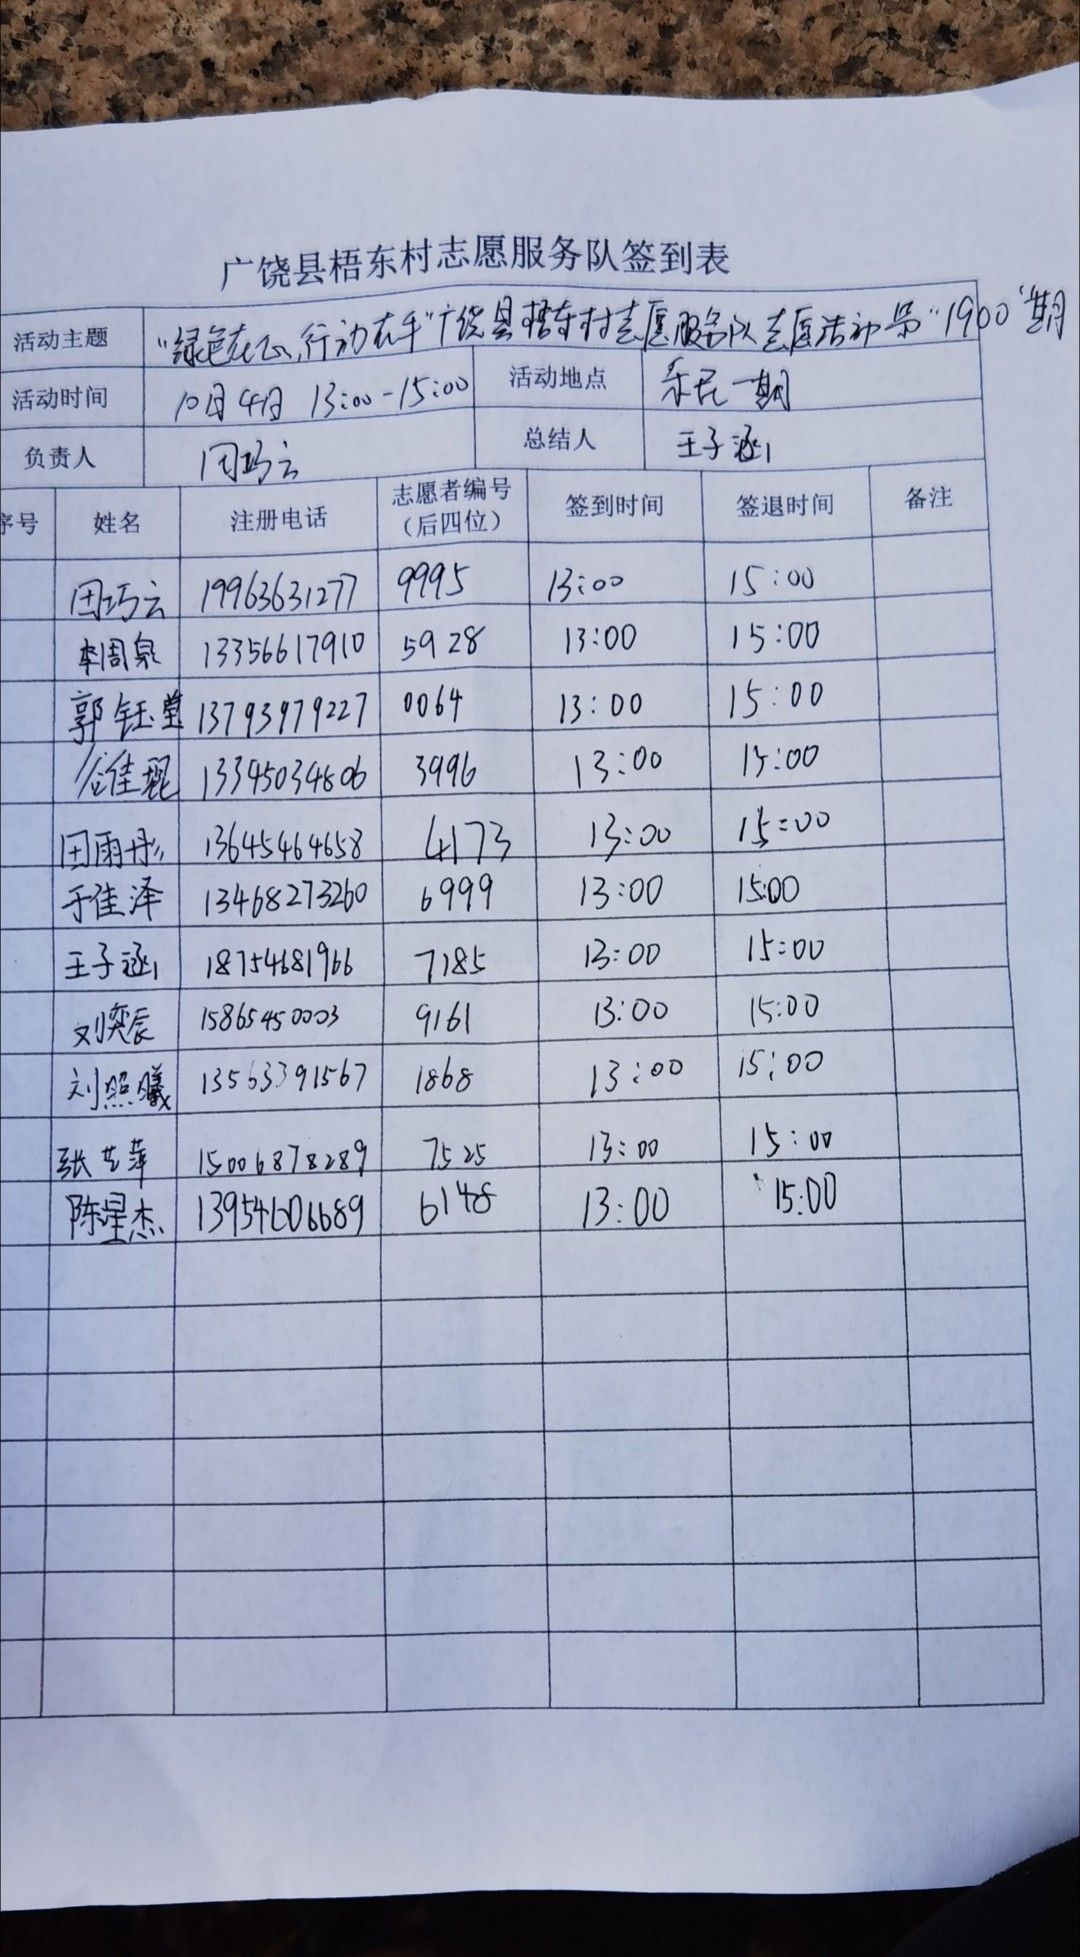 广饶县梧东村志愿服务队签到表
活动主题 "绿色在心,行动在手"广饶县梧东村志愿服务队志愿活动第"1900"期
活动时间 10月4日 13:00-15:00 活动地点 乐民一期
负责人 田巧云 总结人 王子涵
序号 姓名 注册电话 志愿者编号(后四位) 签到时间 签退时间 备注
田巧云 19963631277 9995 13:00 15:00
李周泉 13356617910 5928 13:00 15:00
郭钰莹 13793979227 0064 13:00 15:00
谷佳琨 13345034806 3996 13:00 15:00
田雨彤 13645464658 4173 13:00 15:00
于佳泽 13468273260 6999 13:00 15:00
王子涵 18754681966 7185 13:00 15:00
刘奕辰 15865450003 9161 13:00 15:00
刘照曦 13563391567 1868 13:00 15:00
张艺萍 15006878289 7525 13:00 15:00
陈星杰 13954606689 6148 13:00 15:00